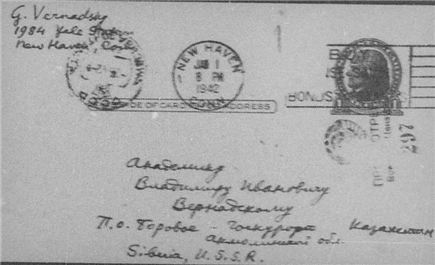 G. Vernadsky
1984 Yale Station
New Haven, Conn
NEW HAVEN
JAN 1
8 PM
1942
CONN.
BONDS
SIDE OF CARD
ADDRESS
762
Академику
Владимиру Ивановичу
Вернадскому
П.о. Боровое - гос курорт Казахстан
Акмолинской обл.
Siberia, U.S.S.R.